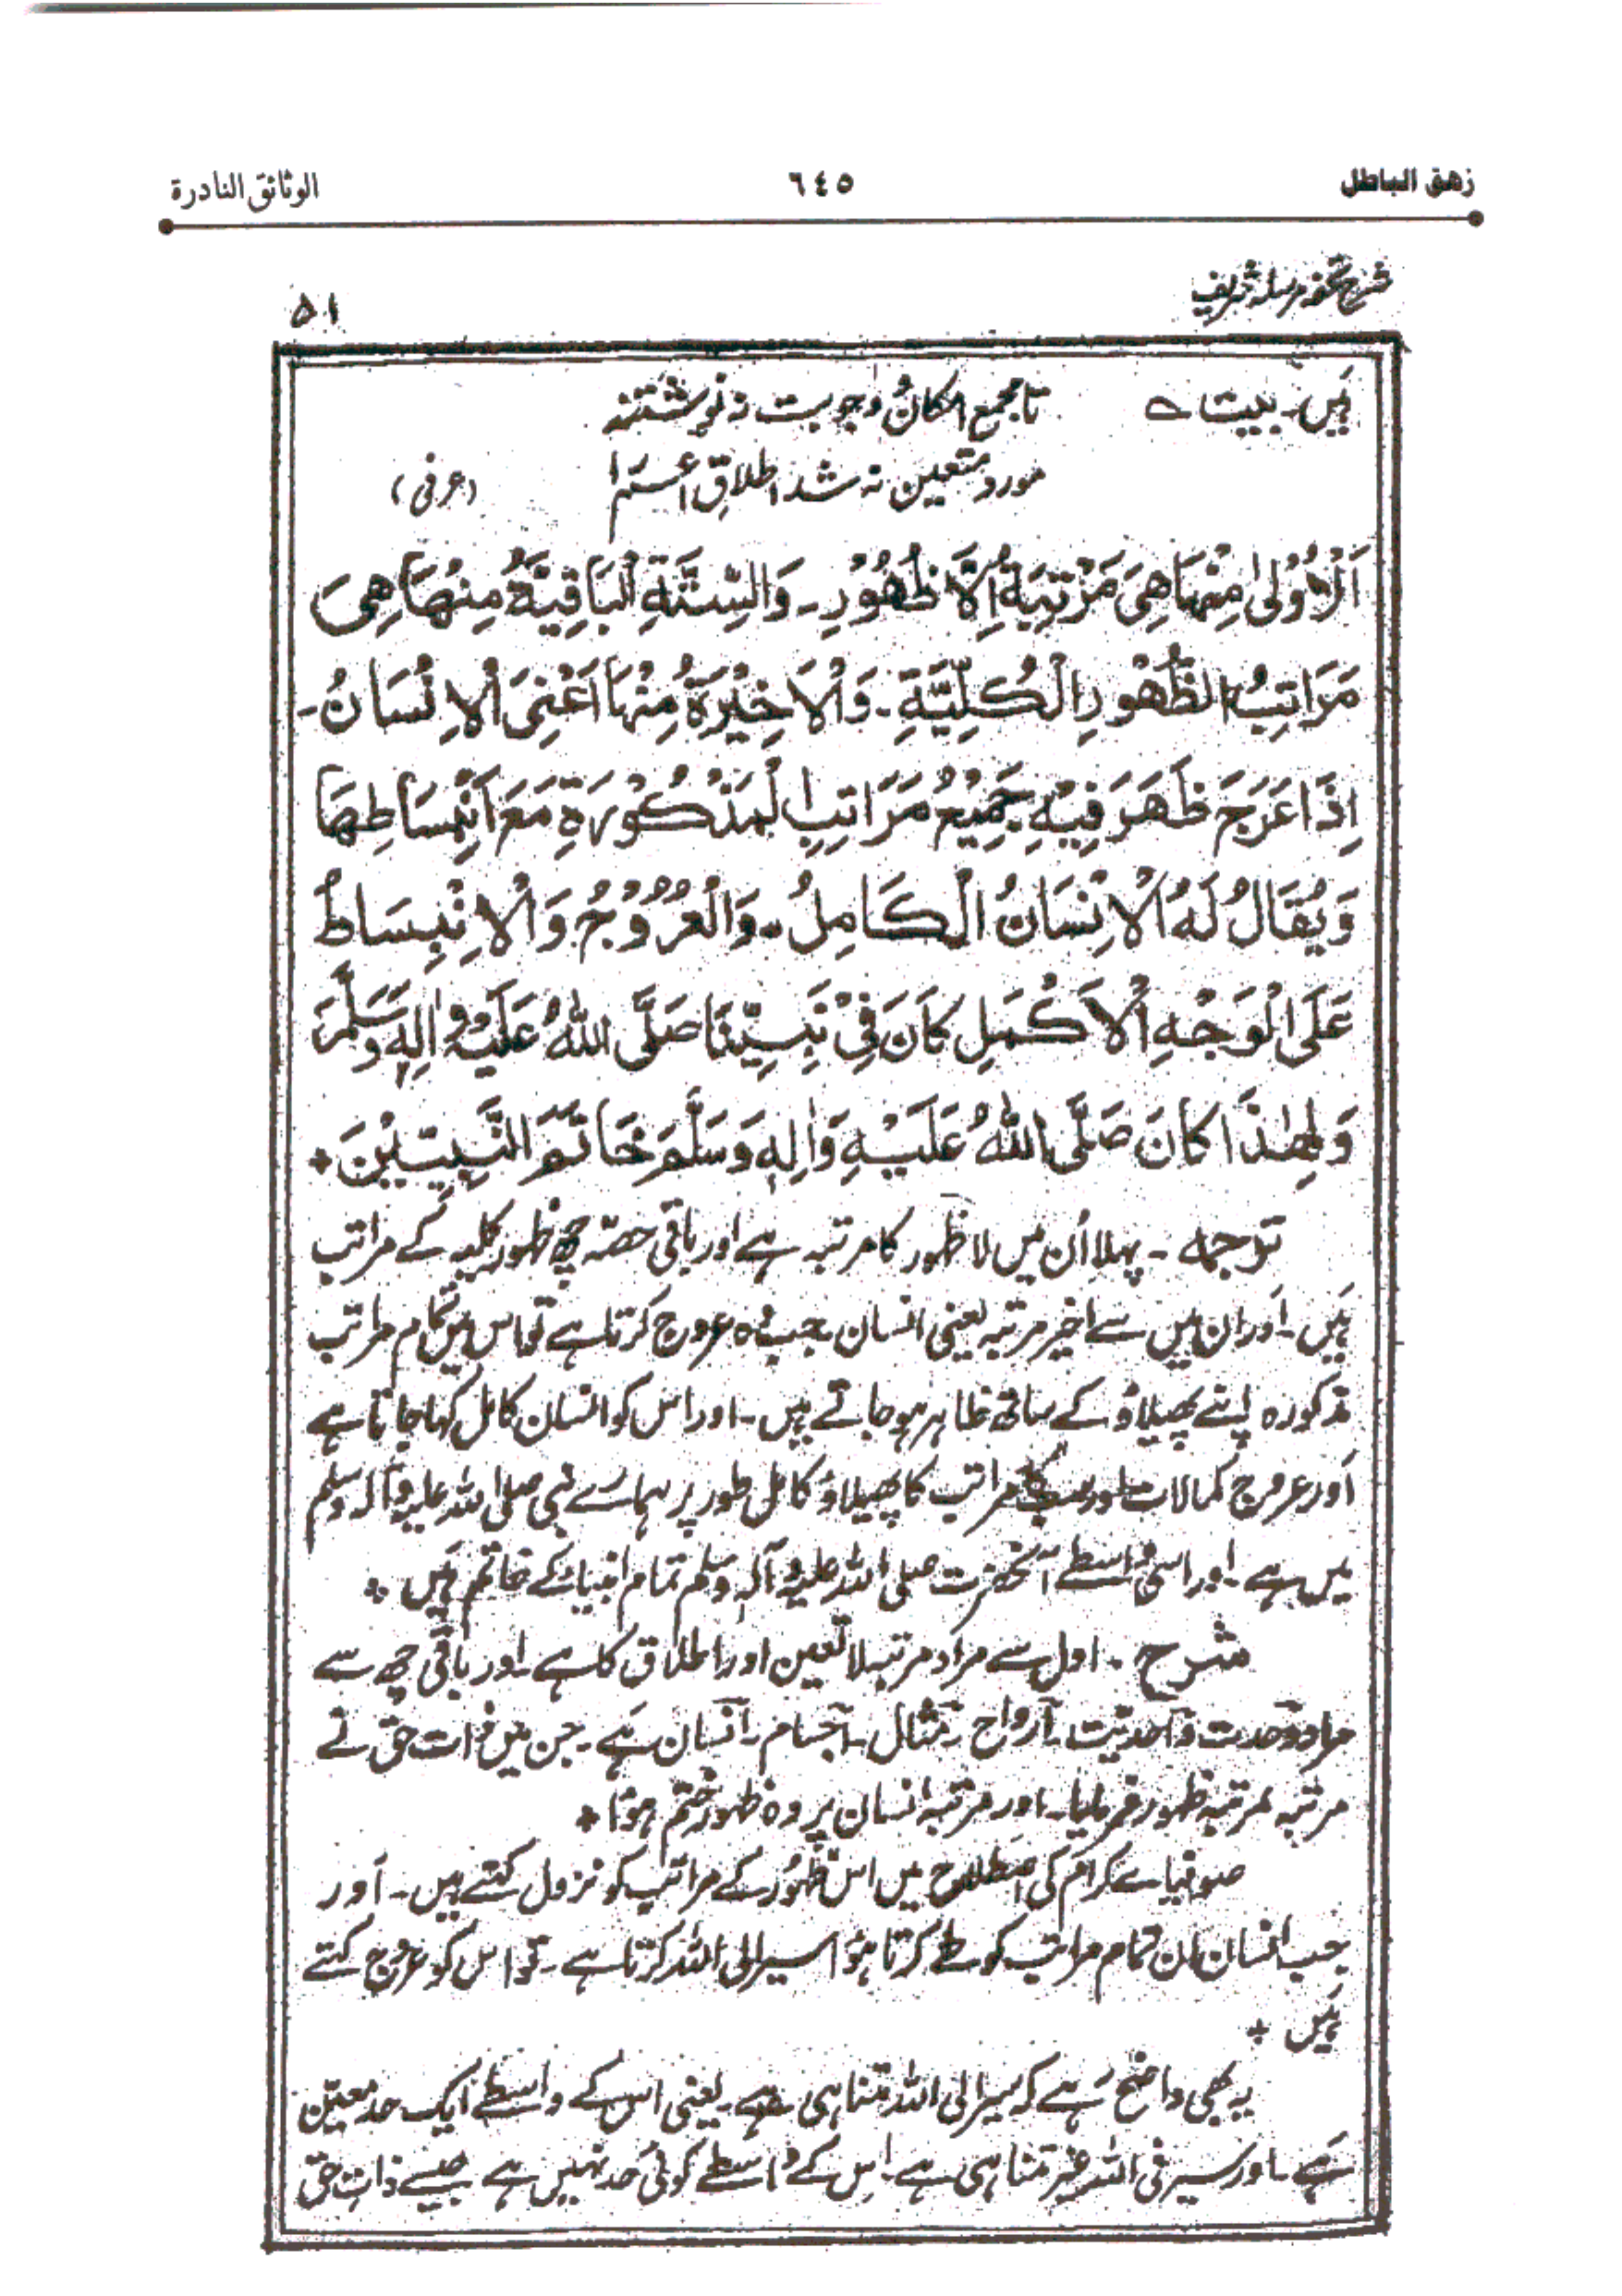 زهق الباطل
٦٤٥
الوثائق النادرة
شرح تحفہ مرسلہ شریف
۵۱
ہَیں۔ بیت ؎ تا مجمع امکانُ وجوبت نہ نوشتند
مورد متعین نہ شد اطلاقِ اعم را (عرفی)
اَلْاُوْلٰى مِنْهَا هِيَ مَرْتَبَةُ اِلَّا ظُهُوْرِ۔ وَالسِّتَّةِ الْبَاقِيَّةُ مِنْهَا هِيَ
مَرَاتِبُ الظُّهُوْرِ الْكُلِّيَّةِ۔ وَالْاَخِيْرَةُ مِنْهَا اَعْنِىَ الْاِنْسَانُ۔
اِذَا عَرَجَ ظَهَرَ فِيْهِ جَمِيْعُ مَرَاتِبِ الْمَذْكُوْرَةِ مَعَ اَنْبِسَاطِهَا
وَيُقَالُ لَهُ الْاِنْسَانُ الْكَامِلُ۔ وَالْعُرُوْجُ وَالْاِنْبِسَاطُ
عَلَى الْوَجْهِ الْاَكْمَلِ كَانَ فِىْ نَبِيِّنَا صَلَّى اللهُ عَلَيْهِ وَاٰلِهٖ وَسَلَّمَ
وَلِهٰذَا كَانَ صَلَّى اللهُ عَلَيْهِ وَاٰلِهٖ وَسَلَّمَ خَاتَمَ النَّبِيّٖيْنَ ٭
ترجمہ ۔ پہلا اُن میں لا ظہور کا مرتبہ ہے اور باقی حصّہ چھ ظہور کلیہ کے مراتب
ہَیں۔ اَور ان میں سے اخیر مرتبہ یعنی انسان جب وہ عروج کرتا ہے تو اس میں تمام مراتب
مذکورہ اپنے پھیلاؤ کے ساتھ ظاہر ہو جاتے ہیں۔ اور اس کو انسان کامل کہا جاتا ہے
اَور عروج کمالات اور سب مراتب کا پھیلاؤ کامل طور پر ہمارے نبی صلی اللہ علیہ وآلہ وسلم
میں ہے۔ اور اسی واسطے آنحضرت صلی اللہ علیہ وآلہٖ وسلم تمام انبیاء کے خاتم ہَیں ٭
شرح ۔ اول سے مراد مرتبہ لا تعین اور اطلاق کا ہے۔ اور باقی چھ سے
مراد وحدت و احدیت۔ ارواح ۔ مثال۔ اجسام۔ انسان ہَے۔ جن میں ذات حق نے
مرتبہ بمرتبہ ظہور فرمایا۔ اور مرتبہ انسان پر وہ ظہور ختم ہؤا ٭
صوفیاے کرام کی اصطلاح میں اس ظہُور کے مراتب کو نزول کہتے ہیں۔ اَور
جب انسان ان تمام مراتب کو طے کرتا ہؤا سیر الی اللہ کرتا ہے۔ تو اس کو عروج کہتے
ہَیں ٭
یہ بھی واضح رَہے کہ سیر الی اللہ متناہی ہے۔ یعنی اس کے واسطے ایک حد معیّن
ہَے۔ اور سیر فی اللہ غیر متناہی ہے۔ اِس کے واسطے کوئی حد نہیں ہے جیسے ذات حق